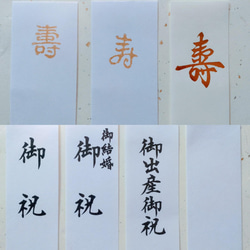 壽
寿
壽
御祝
御結婚
御祝
御出産御祝